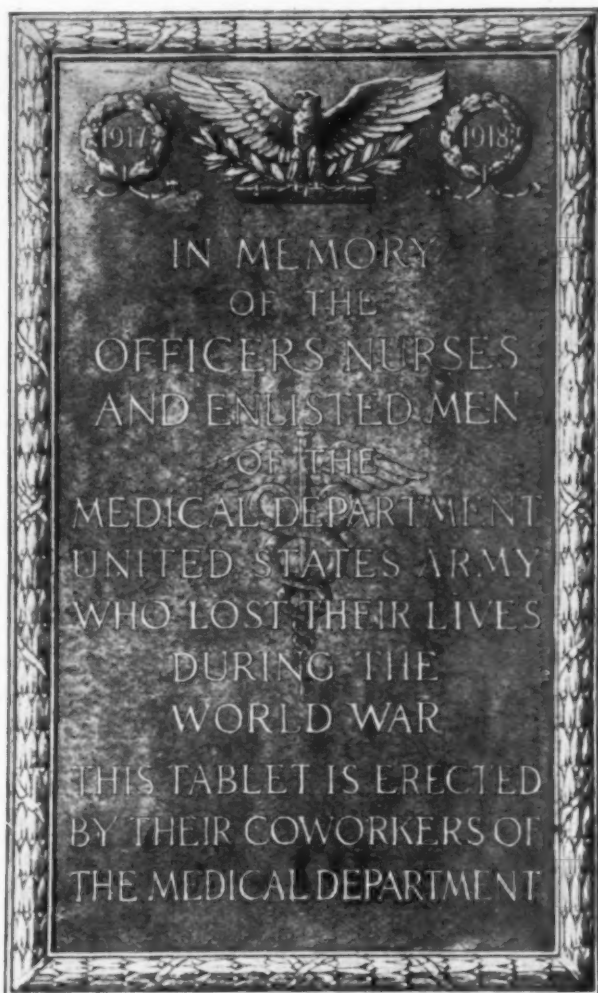 1917 1918
IN MEMORY
OF THE
OFFICERS NURSES
AND ENLISTED MEN
OF THE
MEDICAL DEPARTMENT
UNITED STATES ARMY
WHO LOST THEIR LIVES
DURING THE
WORLD WAR
THIS TABLET IS ERECTED
BY THEIR COWORKERS OF
THE MEDICAL DEPARTMENT